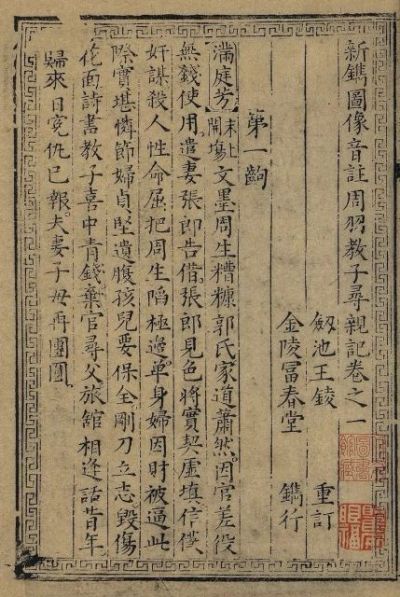 新鐫圖像音註周羽教子尋親記卷之一
劔池王錂 重訂
金陵富春堂 鐫行
第一齣
滿庭芳 末上開塲 文墨周生糟糠郭氏家道蕭然。因官差役
無錢使用。遣妻張郎告借。張郎見色將實契虛填信僕
奸謀殺人性命屈把周生陷極邊。单身婦因財被逼此
際實堪憐節婦貞堅遺腹孩兒要保全。剛刀立志毀傷
花面詩書教子喜中青錢棄官尋父旅舘相逢話昔年
歸來日寃仇已報。夫妻子母再團圓。